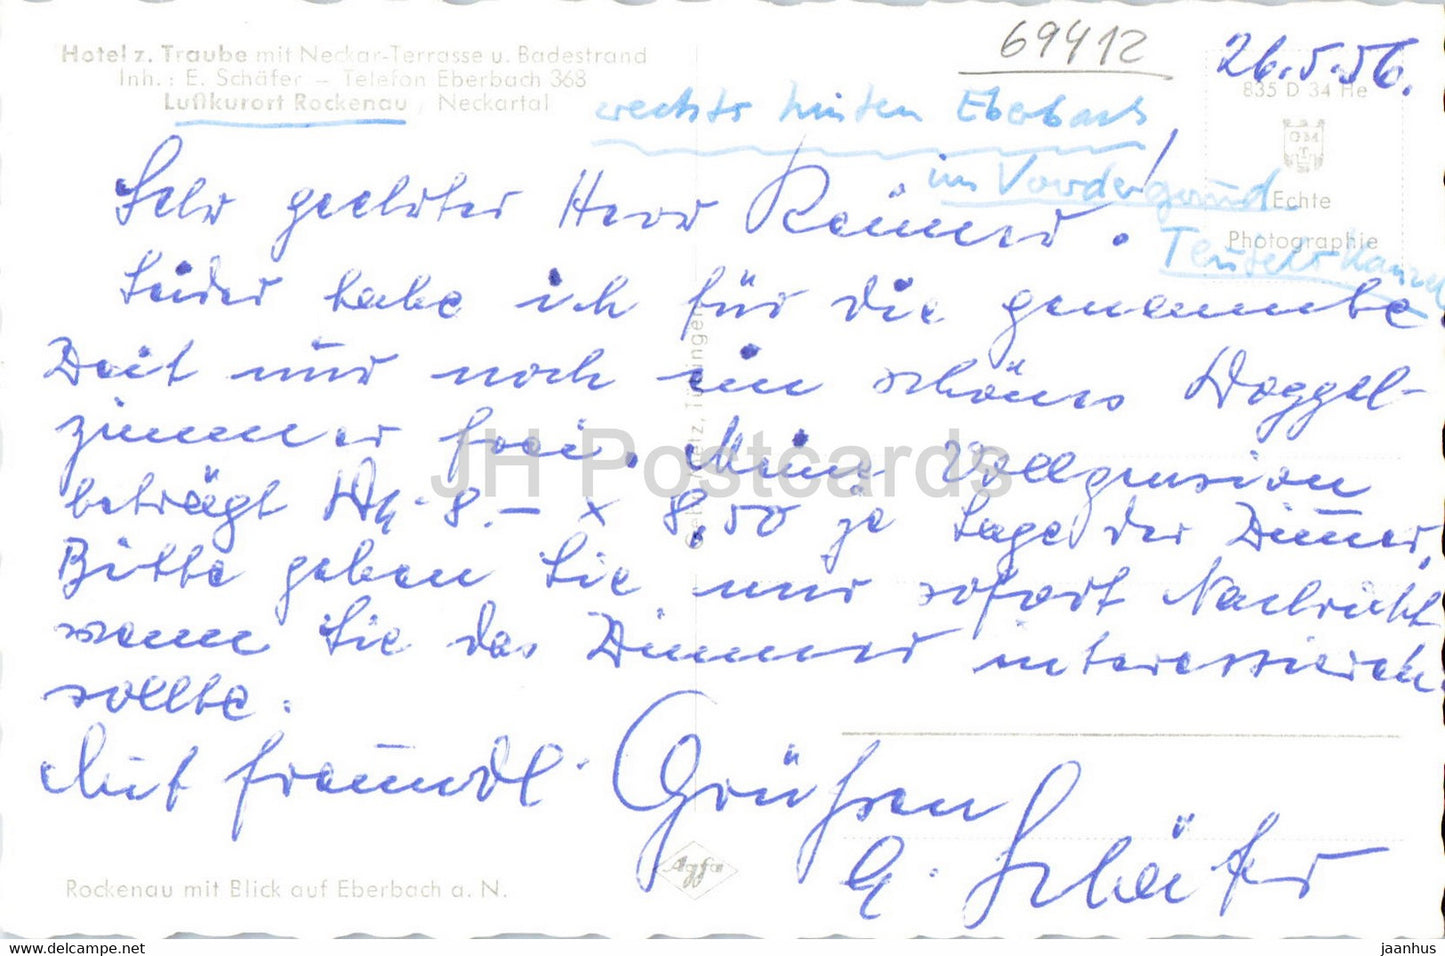 69412
26.5.56.
Hotel z. Traube mit Neckar-Terrasse u. Badestrand
Inh.: E. Schäfer – Telefon Eberbach 368
Luftkurort Rockenau / Neckartal
835 D 34 He
rechts hinten Eberbach,
im Vordergrund
Teufelskanzel
Echte
Photographie
Sehr geehrter Herr Reimer.
Leider habe ich für die genannte
Zeit nur noch ein schönes Doppel-
zimmer frei. Meine Vollpension
beträgt DM 8.– x 8,50 je Lage der Zimmer,
Bitte geben Sie mir sofort Nachricht
wenn Sie das Zimmer interessieren
sollte.
Mit freundl. Grüßen
E. Schäfer
Agfa
Rockenau mit Blick auf Eberbach a. N.
JH Postcards
www.delcampe.net
jaanhus